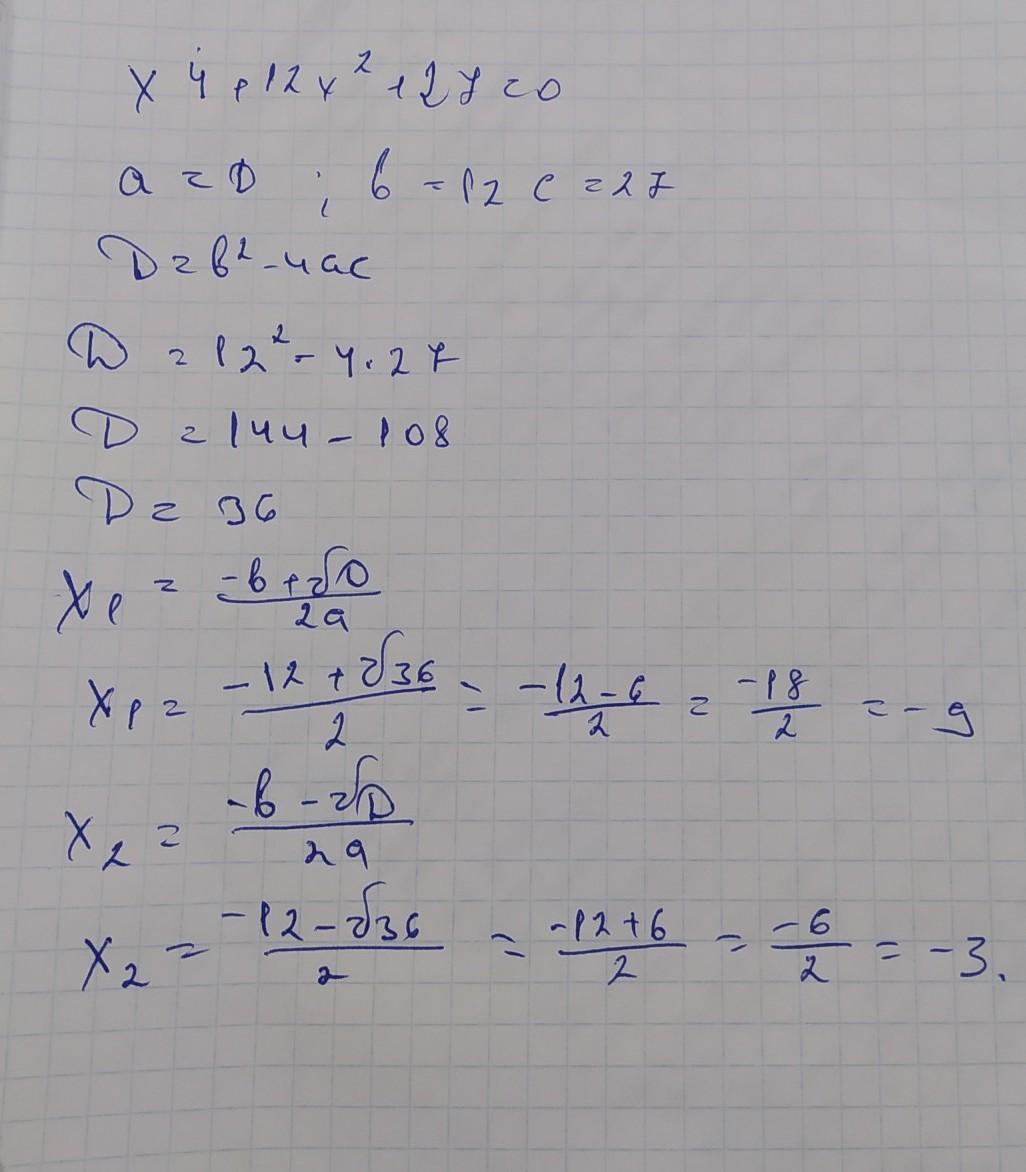 x 4 + 12x² + 27 = 0
a = D ; b = 12 c = 27
D = b² - 4ac
D = 12² - 4 · 27
D = 144 - 108
D = 36
x₁ = (-b + √D) / 2a
x₁ = (-12 + √36) / 2 = (-12 - 6) / 2 = -18 / 2 = -9
x₂ = (-b - √D) / 2a
x₂ = (-12 - √36) / 2 = (-12 + 6) / 2 = -6 / 2 = -3.